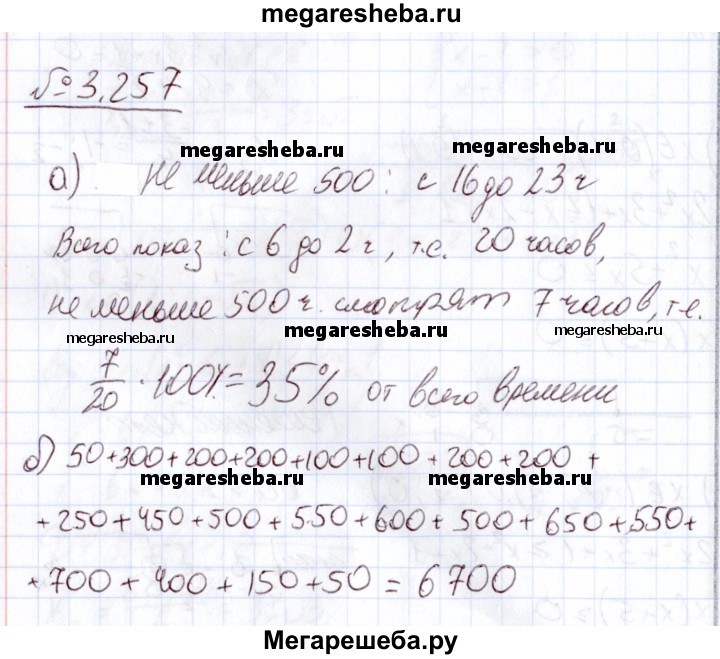 megaresheba.ru
№ 3.257
megaresheba.ru megaresheba.ru
а) не меньше 500: с 16 до 23 ч
Всего показ: с 6 до 2 ч, т.е. 20 часов,
не меньше 500 ч. смотрят 7 часов, т.е.
megaresheba.ru megaresheba.ru megaresheba.ru
7/20 · 100% = 35% от всего времени
б) 50+300+200+200+100+100+200+200+
megaresheba.ru megaresheba.ru
+250+450+500+550+600+500+650+550+
+700+400+150+50=6700
Мегарешеба.ру